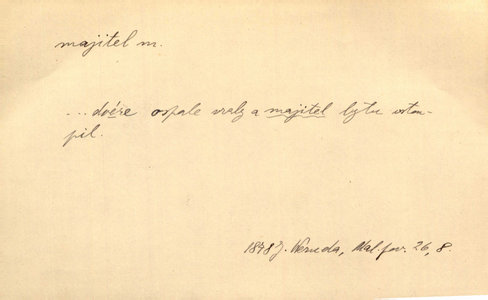 majitel m.
... dvéře ospale vrzly a majitel bytu vstou-
pil.
1878 J. Neruda, Mal. pov. 26, 8.